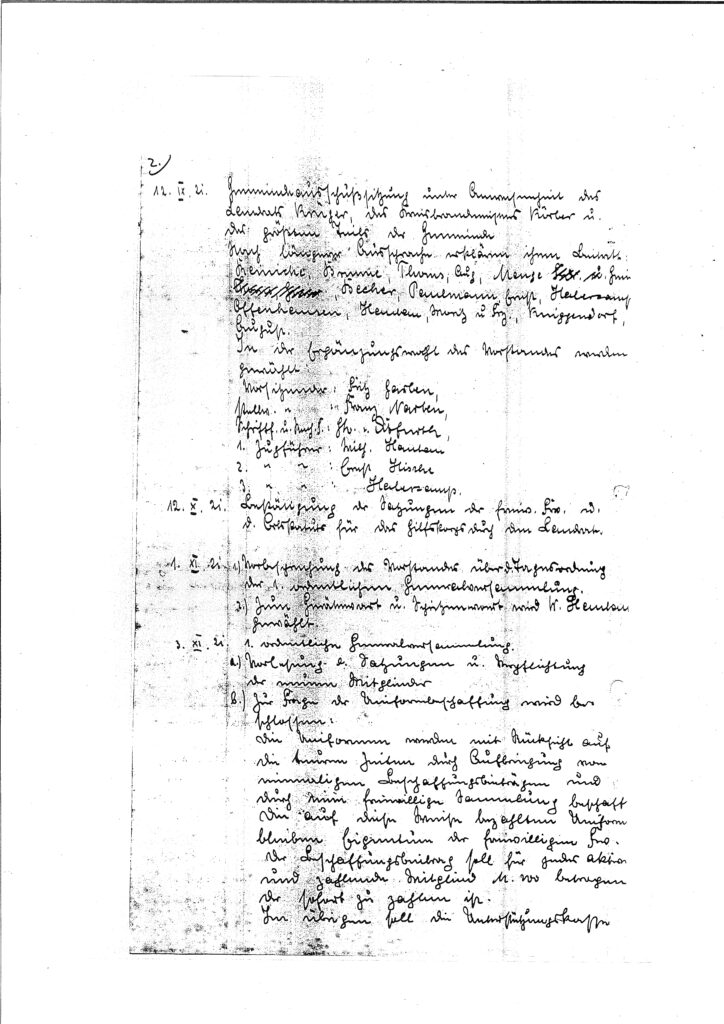 2.
12. IX. 21. Gemeindeausschußsitzung unter Anwesenheit des
Landrats Krüger, des Kreisbrandmeisters Körber u.
des größten Teils der Gemeinde
Nach längerer Aussprache erklären ihren Beitritt:
Reinicke, Thoms, Aug, Menge u.
Becher, Paulmann Ernst, Haberkamp
Offenhausen, Hantam, Moritz u. Frz., Knippendorf,
August.
In der Ergänzungswahl des Vorstandes werden
gewählt:
Vorsitzender: Fritz Harben,
stellv. " : Franz Narten,
Schriftf. u. :
1. Zugführer: Wilh. Hantam
2. " " : Ernst Hische
3. " " Haberkamp.
12. X. 21. Bestätigung der Satzungen der freiw. Fw. u.
d. Ortsstatuts für das Hilfskorps durch den Landrat.
1. XI. 21 1) Vorbesprechung des Vorstandes über d. Tagesordnung
der 1. ordentlichen Generalversammlung.
2.) Zum Gerätewart u. wird W. Hantam
gewählt.
3. XI. 21 1. ordentliche Generalversammlung.
a) Vorlesung d. Satzungen u. Verpflichtung
der neuen Mitglieder
b.) Zur Frage der Uniformbeschaffung wird be-
schlossen:
Die Uniformen werden mit Rücksicht auf
die teuren Zeiten durch Aufbringung von
einmaligen Beschaffungsbeiträgen und
durch eine freiwillige Sammlung beschafft
Die auf diese Weise bezahlten Uniform
bleiben Eigentum der freiwilligen Fw.
Der Beschaffungsbeitrag soll für jedes aktive
und zahlende Mitglied M. 100 betragen
der sofort zu zahlen ist.
Im übrigen soll die Unterstützungskasse